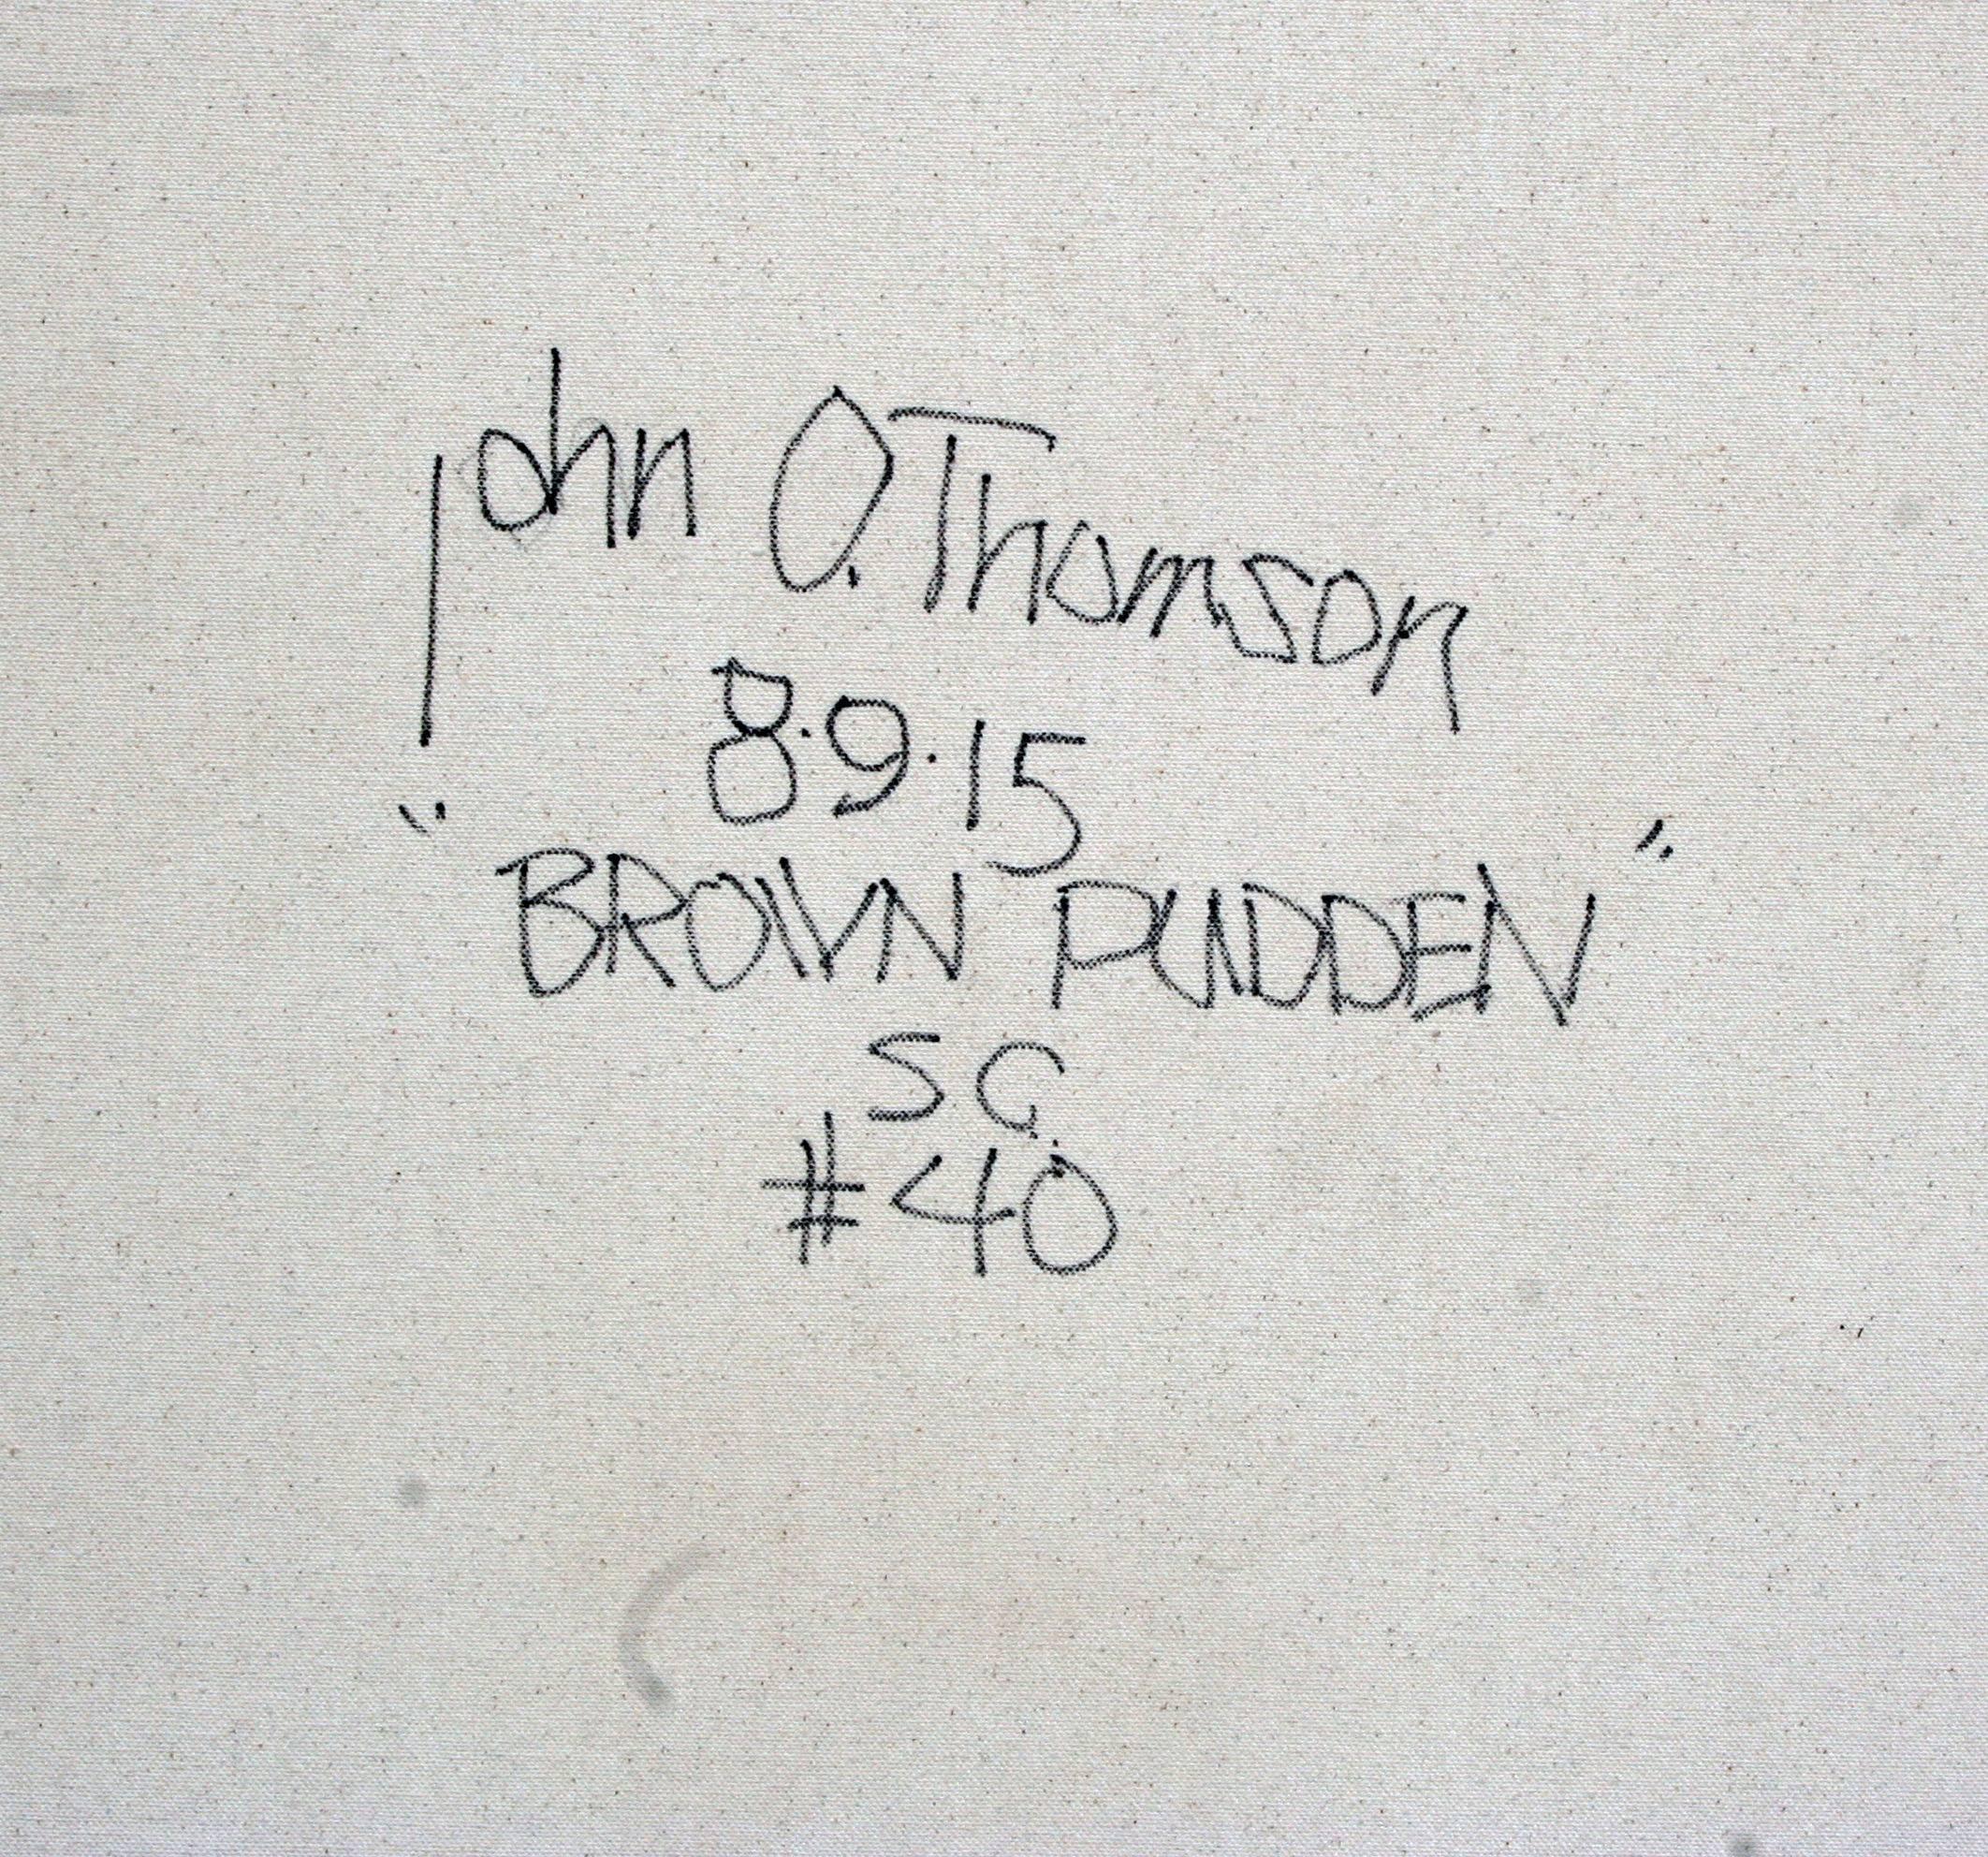 John O. Thomson
8.9.15
"BROWN PUDDEN"
S.C.
#40